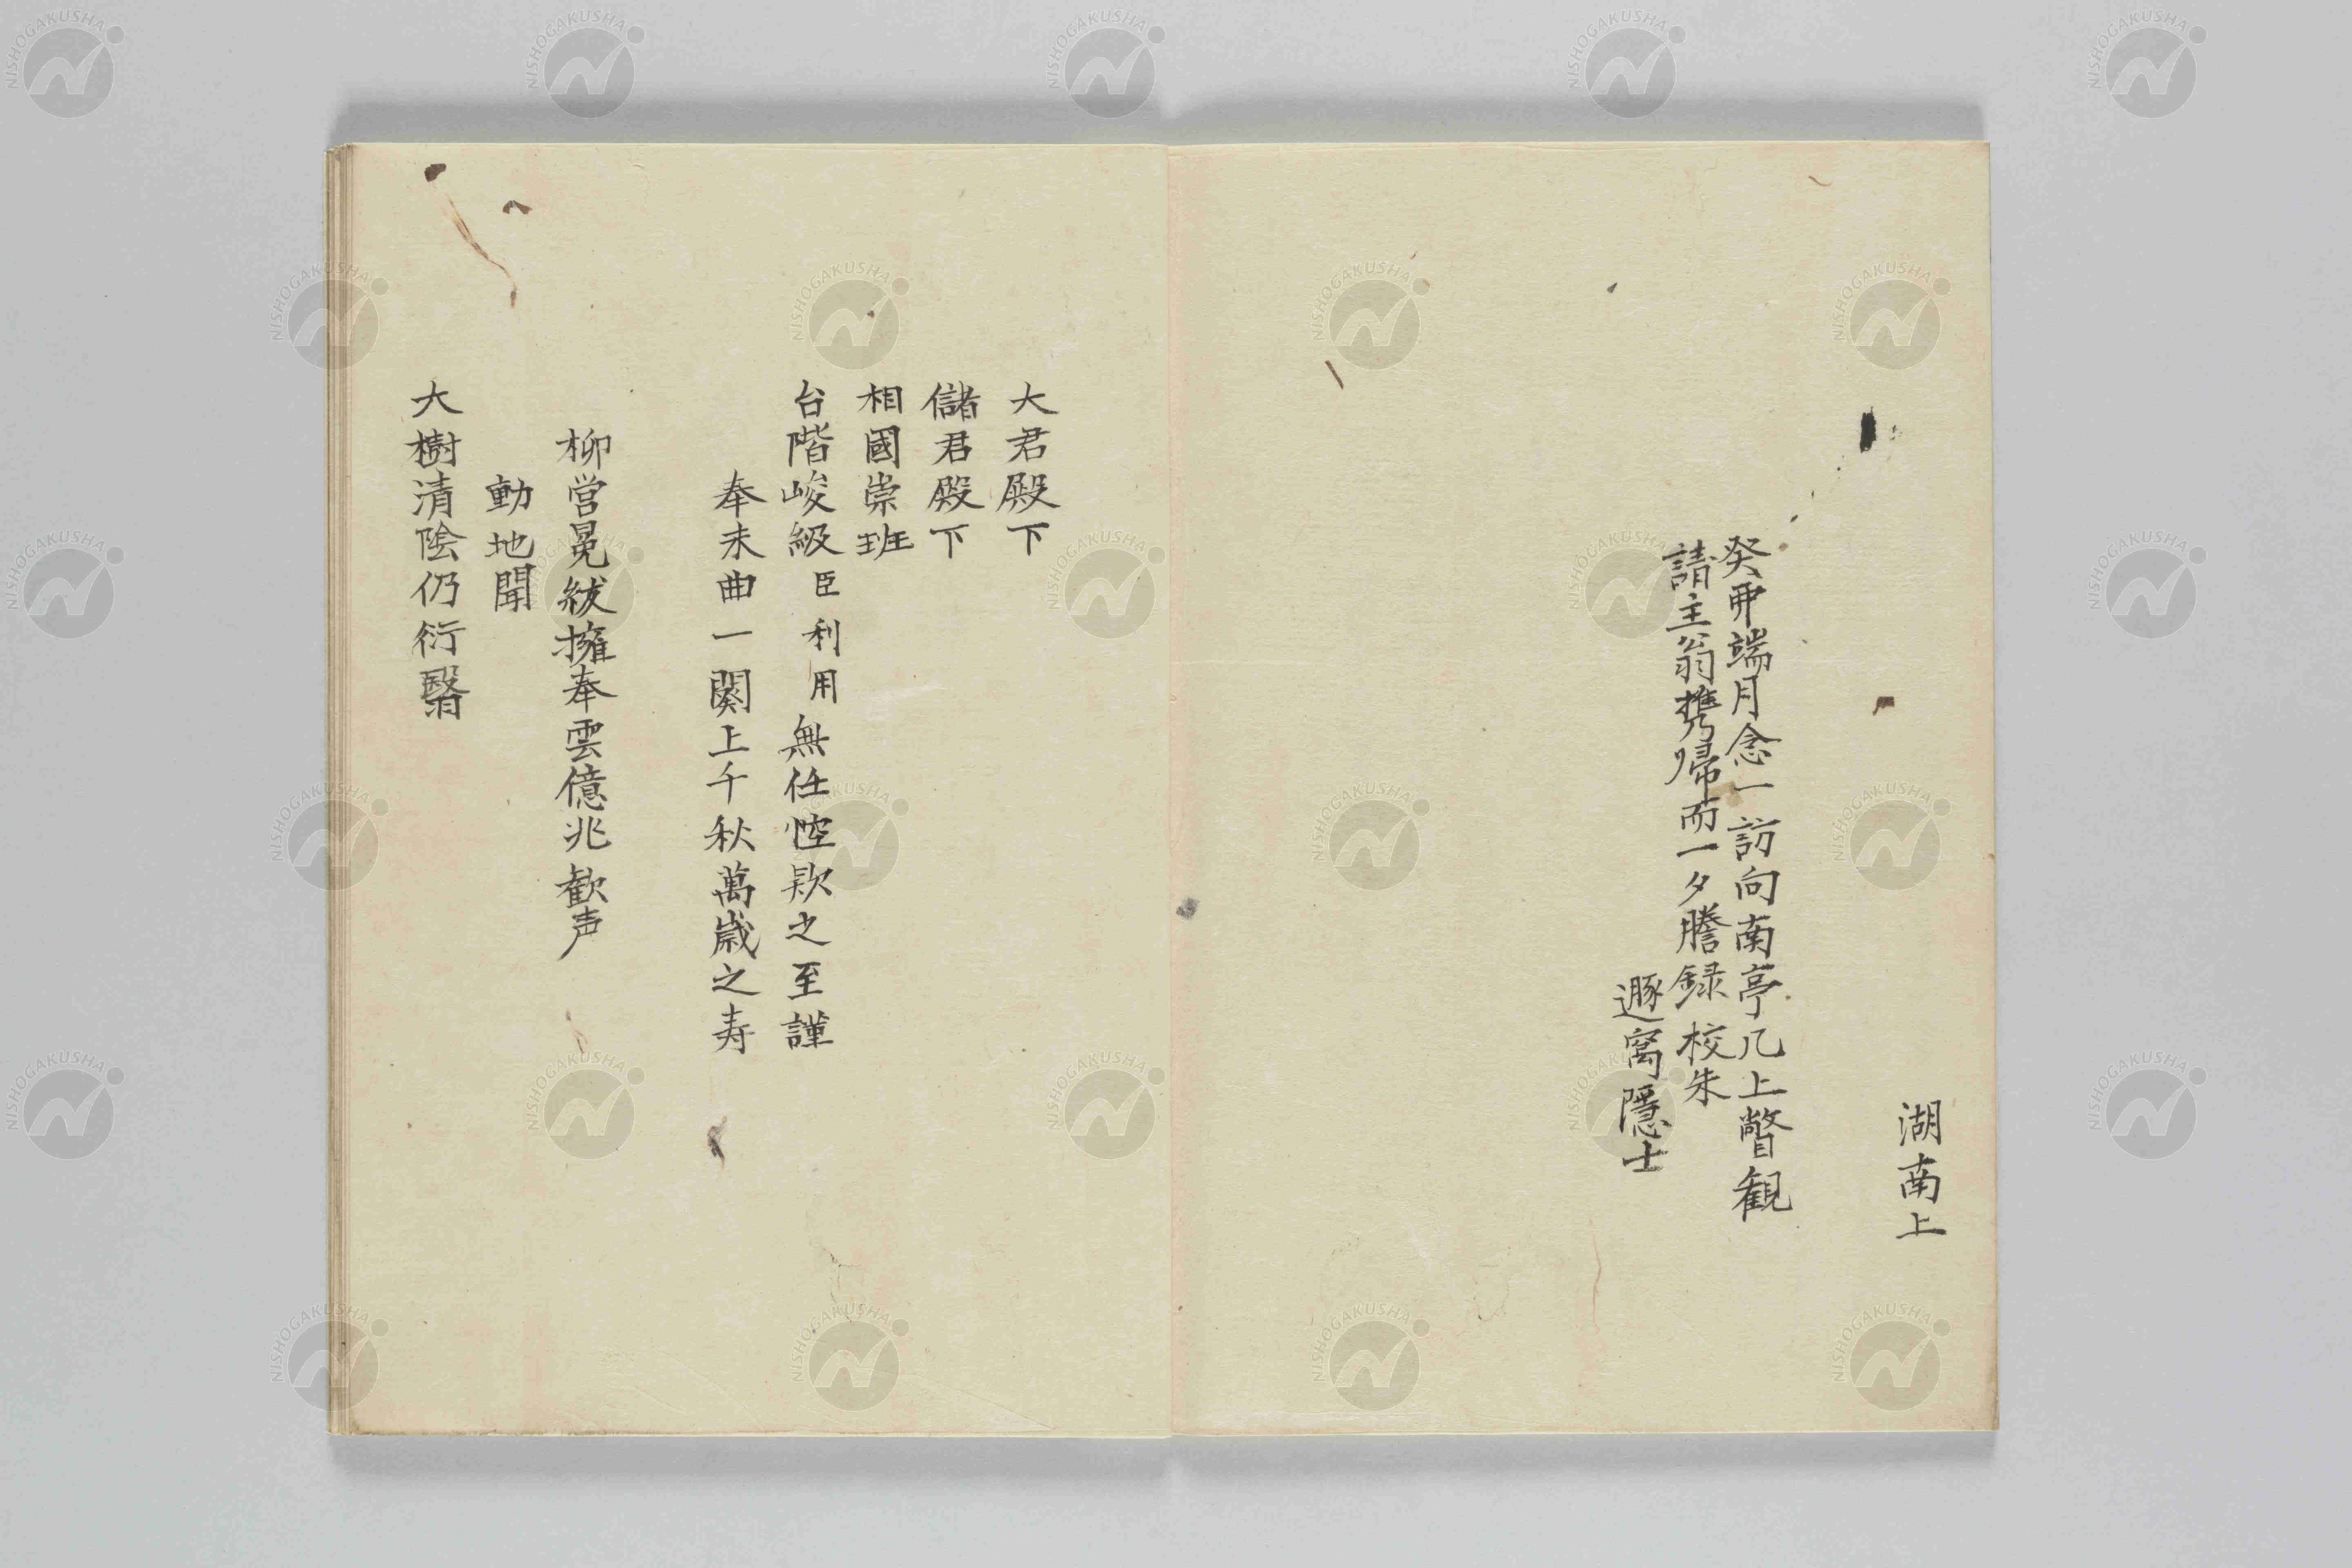 湖南上
癸丣端月念一訪向南亭几上瞥観
請主翁携帰而一夕謄録校朱
遯窩隠士
大君殿下
儲君殿下
相國崇班
台階峻級臣利用無任悾欵之至謹
奉未曲一闋上千秋萬歳之寿
柳営冕紱擁奉雲億兆歓声
動地聞
大樹清陰仍衍翳
NISHOGAKUSHA